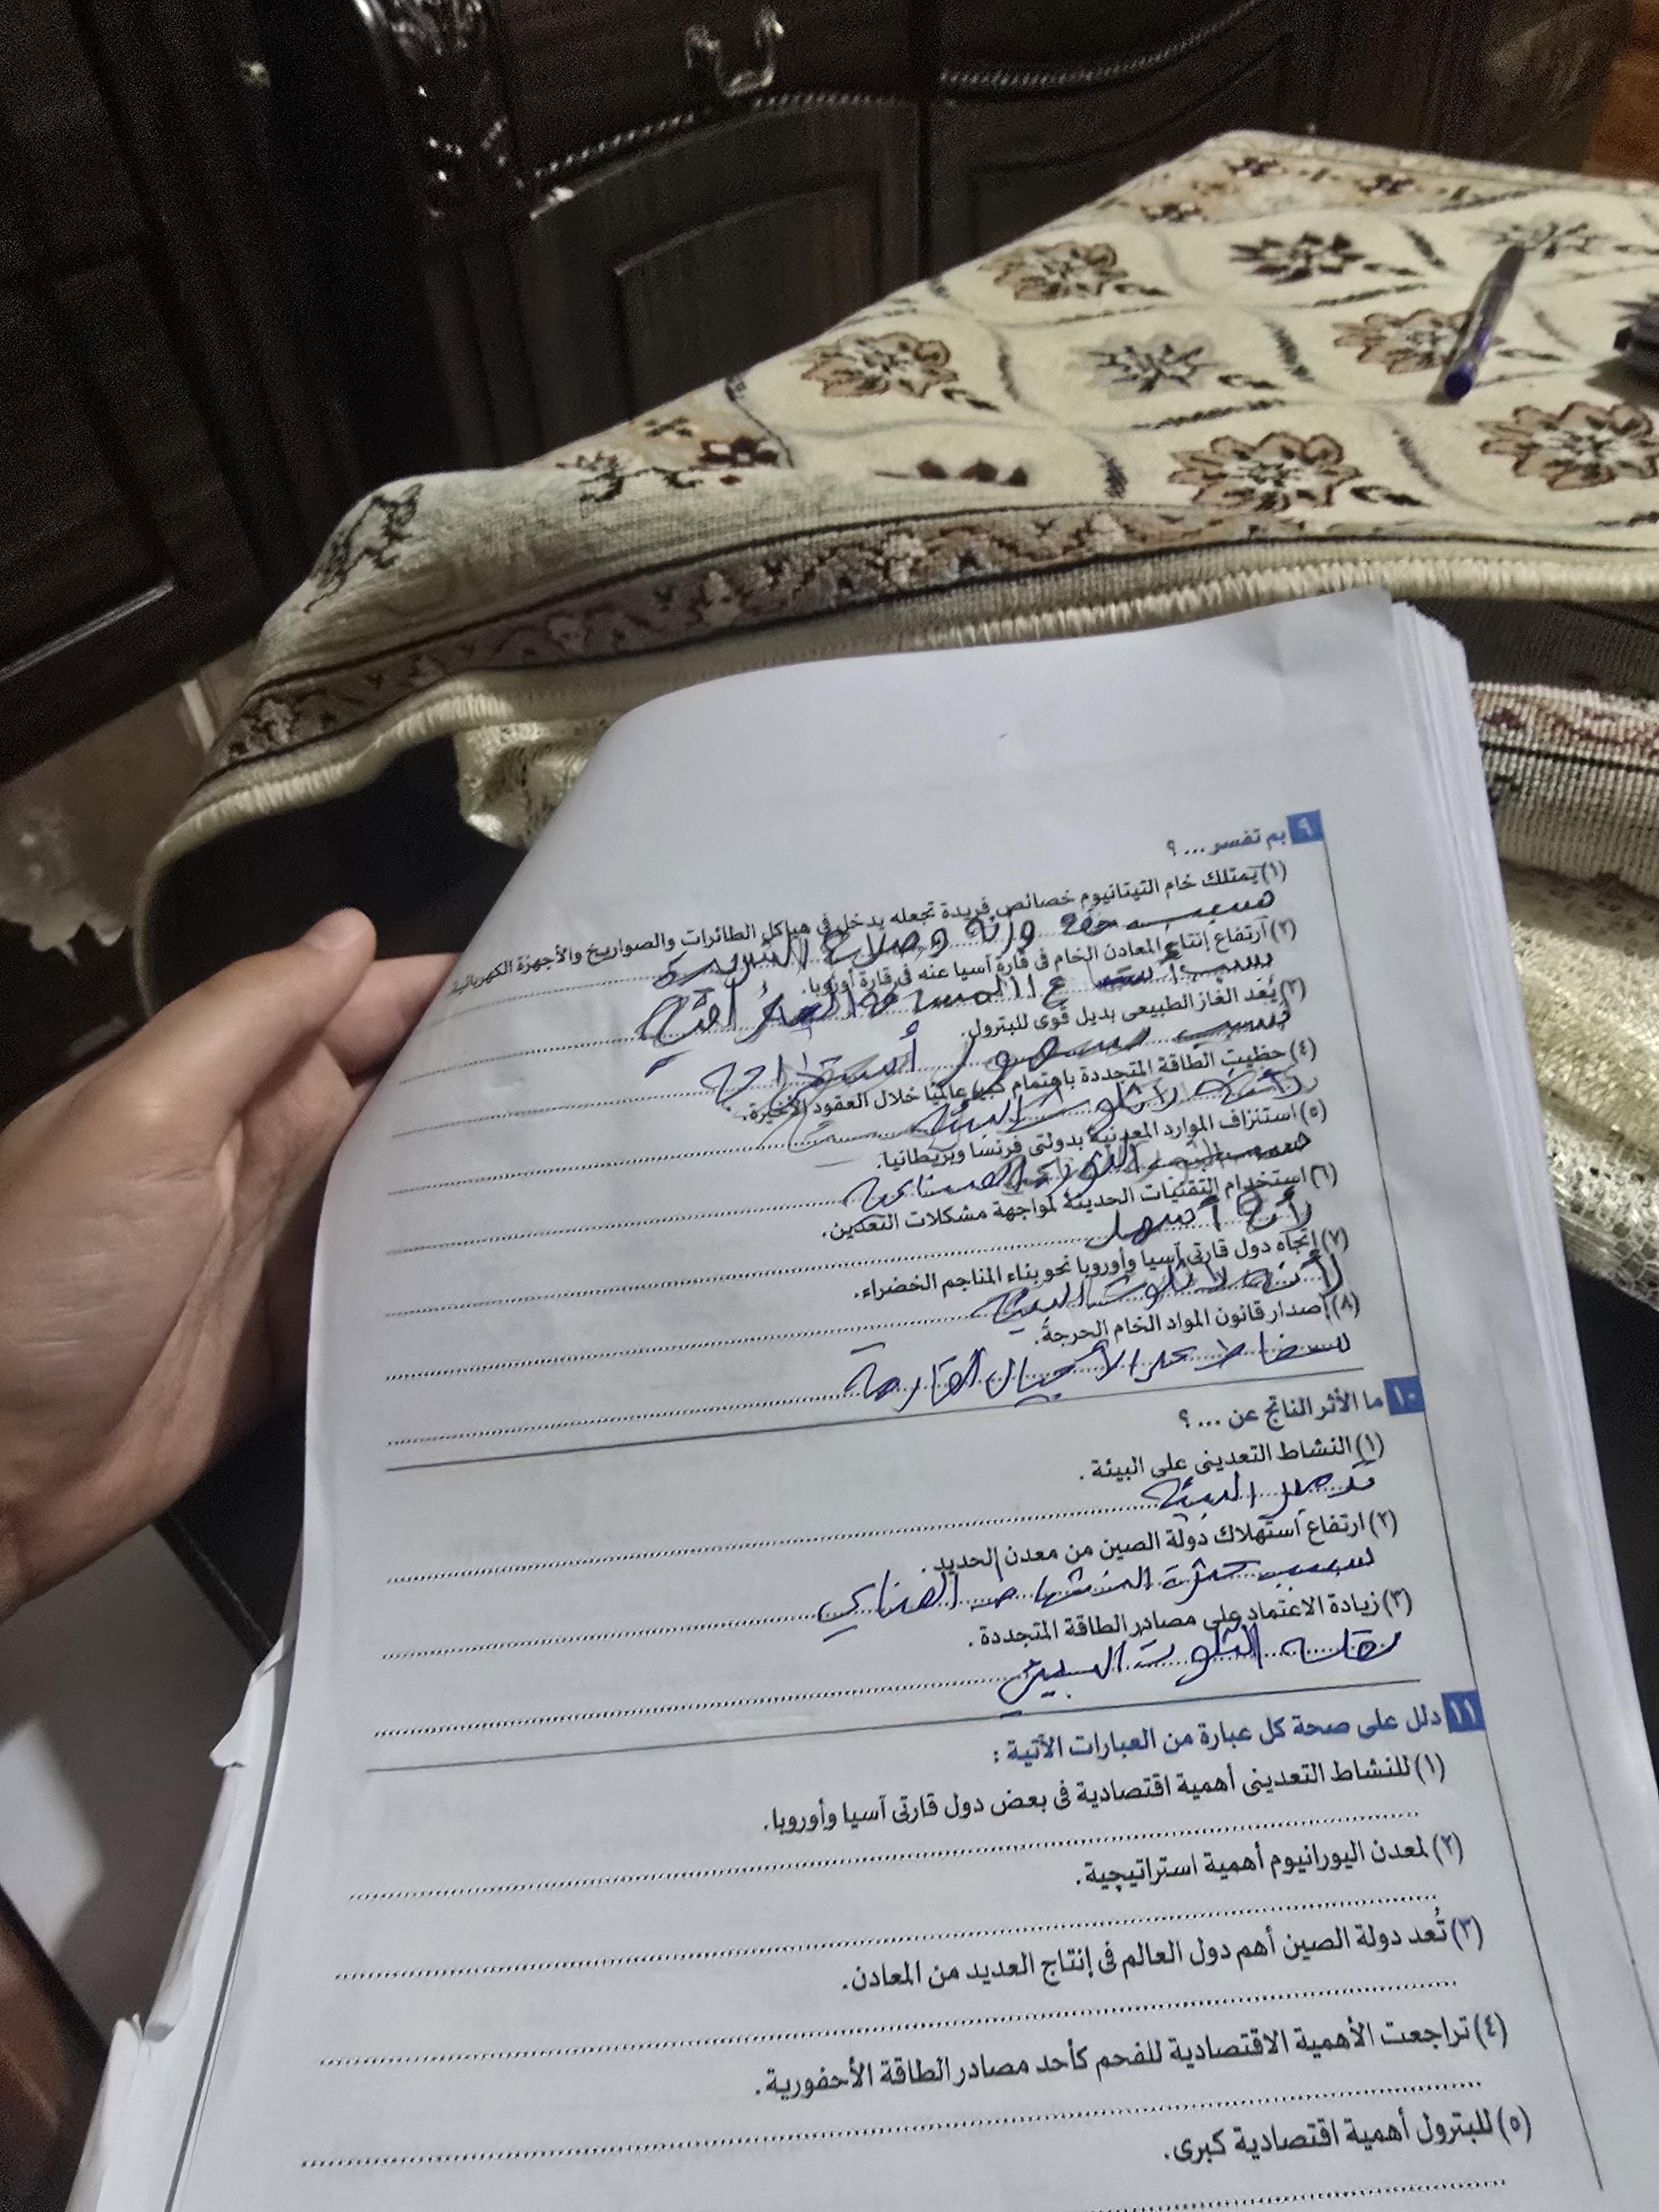 ٩ بم تفسر ... ؟
(١) يمتلك خام التيتانيوم خصائص فريدة تجعله يدخل فى هياكل الطائرات والصواريخ والأجهزة الكهربائية.
بسبب خفة وزنه وصلابة الشديدة
(٢) ارتفاع إنتاج المعادن الخام فى قارة آسيا عنه فى قارة أوروبا.
بسبب المساحة
(٣) يُعد الغاز الطبيعى بديل قوى للبترول.
بسبب أستخراجه
(٤) حظيت الطاقة المتجددة باهتمام كبير عالميًا خلال العقود الأخيرة.
لأنها لا تلوث البيئة
(٥) استنزاف الموارد المعدنية بدولتى فرنسا وبريطانيا.
بسبب الثورة الصناعية
(٦) استخدام التقنيات الحديثة لمواجهة مشكلات التعدين.
أسهل
(٧) اتجاه دول قارتى آسيا وأوروبا نحو بناء المناجم الخضراء.
لا تلوث البيئة
(٨) إصدار قانون المواد الخام الحرجة.
للحفاظ على الأجيال القادمة
١٠ ما الأثر الناتج عن ... ؟
(١) النشاط التعدينى على البيئة .
تدمير البيئة
(٢) ارتفاع استهلاك دولة الصين من معدن الحديد .
بسبب كثرة الصناعى
(٣) زيادة الاعتماد على مصادر الطاقة المتجددة .
التلوث البيئى
١١ دلل على صحة كل عبارة من العبارات الآتية :
(١) للنشاط التعدينى أهمية اقتصادية فى بعض دول قارتى آسيا وأوروبا.
(٢) لمعدن اليورانيوم أهمية استراتيجية.
(٣) تُعد دولة الصين أهم دول العالم فى إنتاج العديد من المعادن.
(٤) تراجعت الأهمية الاقتصادية للفحم كأحد مصادر الطاقة الأحفورية.
(٥) للبترول أهمية اقتصادية كبرى.